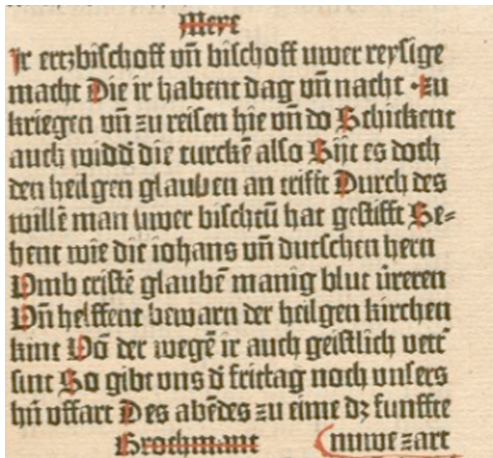 Mere
Ir ertzbischoff vn̄ bischoff uwer reysige
macht Die ir habent dag vn̄ nacht · zu
kriegen vn̄ zu reisen hie vn̄ do Schickent
auch widd̕ die turckē also Sijt es doch
den heilgen glauben an trifft Durch des
willē man uwer bischtū hat gestifft Se⸗
hent wie die iohans vn̄ dutschen hern
Vmb cristē glaubē manig blut v̓reren
Vn̄ helffent bewarn der heilgen kirchen
kint Vō der wegē ir auch geistlich vett̕
sint So gibt vns d̕ frittag noch vnsers
hn̄ vffart Des abēdes zu eime dꝫ funffte
Brochmant nuwe zart